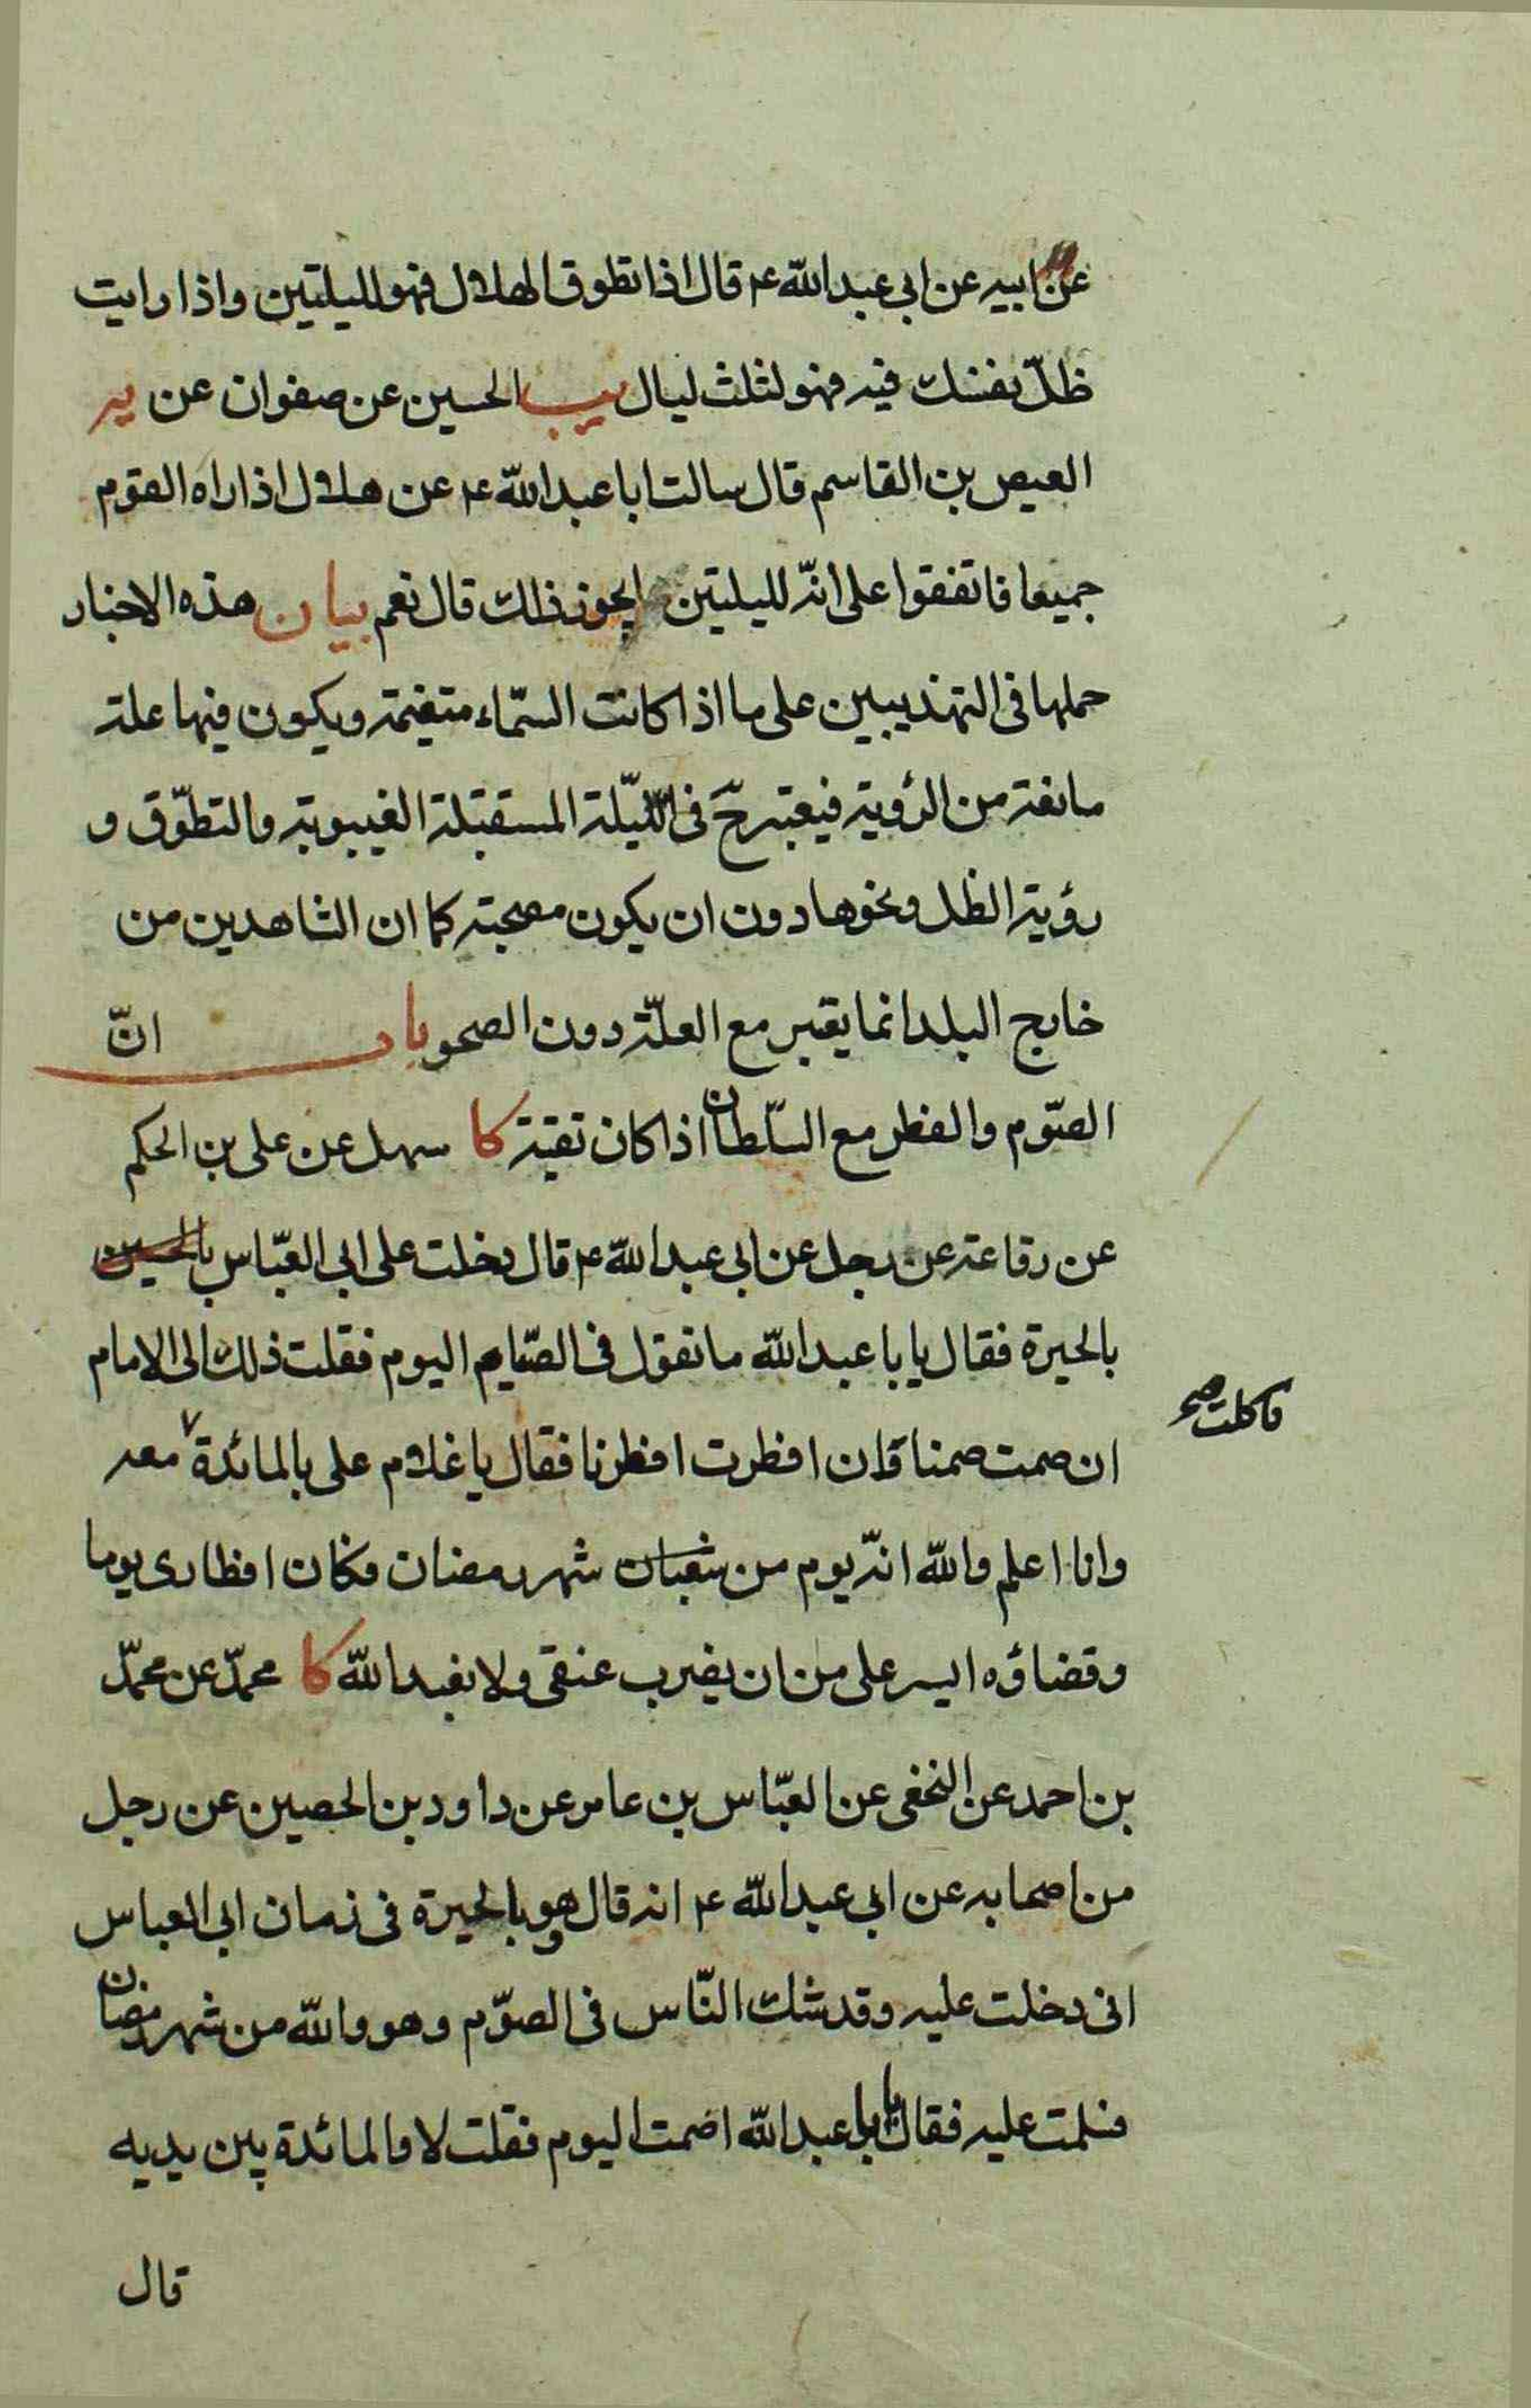 عن ابيه عن ابى عبدالله ع قال اذا تطوق الهلال فهو لليلتين واذا رايت
ظلّ نفسك فيه فهو لثلث ليال يب الحسين عن صفوان عن يه
العيص بن القاسم قال سالت ابا عبدالله ع عن هلال اذا راه القوم
جميعا فاتفقوا على انّه لليلتين ايجوز ذلك قال نعم بيان هذه الاخبار
حملها فى التهذيبين على ما اذا كانت السّماء متغيمة ويكون فيها علة
مانعة من الرؤية فيعتبر حّ فى اللّيلة المستقبلة الغيبوبة والتطوّق و
رؤية الظل ونحوها دون ان يكون مصحية كما ان الشاهدين من
خارج البلد انما يعتبر مع العلّة دون الصحو باب انّ
الصّوم والفطر مع السّلطان اذا كان تقية كا سهل عن على بن الحكم
عن رفاعة عن رجل عن ابى عبدالله ع قال دخلت على ابى العبّاس بالحسين
بالحيرة فقال يا با عبدالله ما تقول فى الصّيام اليوم فقلت ذلك الى الامام
ان صمت صمنا وان افطرت افطرنا فقال يا غلام على بالمائدة معه
فاكلت صح
وانا اعلم والله انّه يوم من شعبان شهر رمضان فكان افطارى يوما
وقضاؤه ايسر على من ان يضرب عنقى ولا يعبد الله كا محمّد عن محمّد
بن احمد عن النخعى عن العبّاس بن عامر عن داود بن الحصين عن رجل
من اصحابه عن ابى عبدالله ع انه قال وهو بالحيرة فى زمان ابى العباس
انى دخلت عليه وقد شك النّاس فى الصوّم وهو والله من شهر رمضان
فسلمت عليه فقال يا با عبدالله اصمت اليوم فقلت لا والمائدة بين يديه
قال